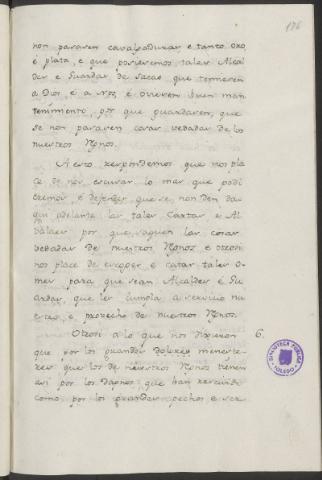 176
non pararen cavalgaduras, e tanto oro
e plata, e que posieremos tales Alcal
des e Guardas de Sacas que temieren
a Dios e a Nos, e ovieren buen man
tenimiento, por que guardasen, que
se non sacaren cosas vedadas de los
nuestros Regnos.
A esto respondemos que nos pla
ce de nos escusar lo mas que podi
eremos, e defender que se non den da
qui adelante las tales Cartas e Al
valaes por que saquen las cosas
vedadas de nuestros Regnos e otrosi
nos place de escoger e catar tales o-
mes para que sean Alcaldes e Gu
ardas, que les cumpla a servicio nu
estro, e provecho de nuestros Regnos
Otrosi a lo que nos dixieron 6.
que por los grandes meneste-
res que los de nuestros Regnos tienen
asi por los daños, que han rescevido
como por los grandes pechos e ser
BIBLIOTECA PUBLICA
TOLEDO